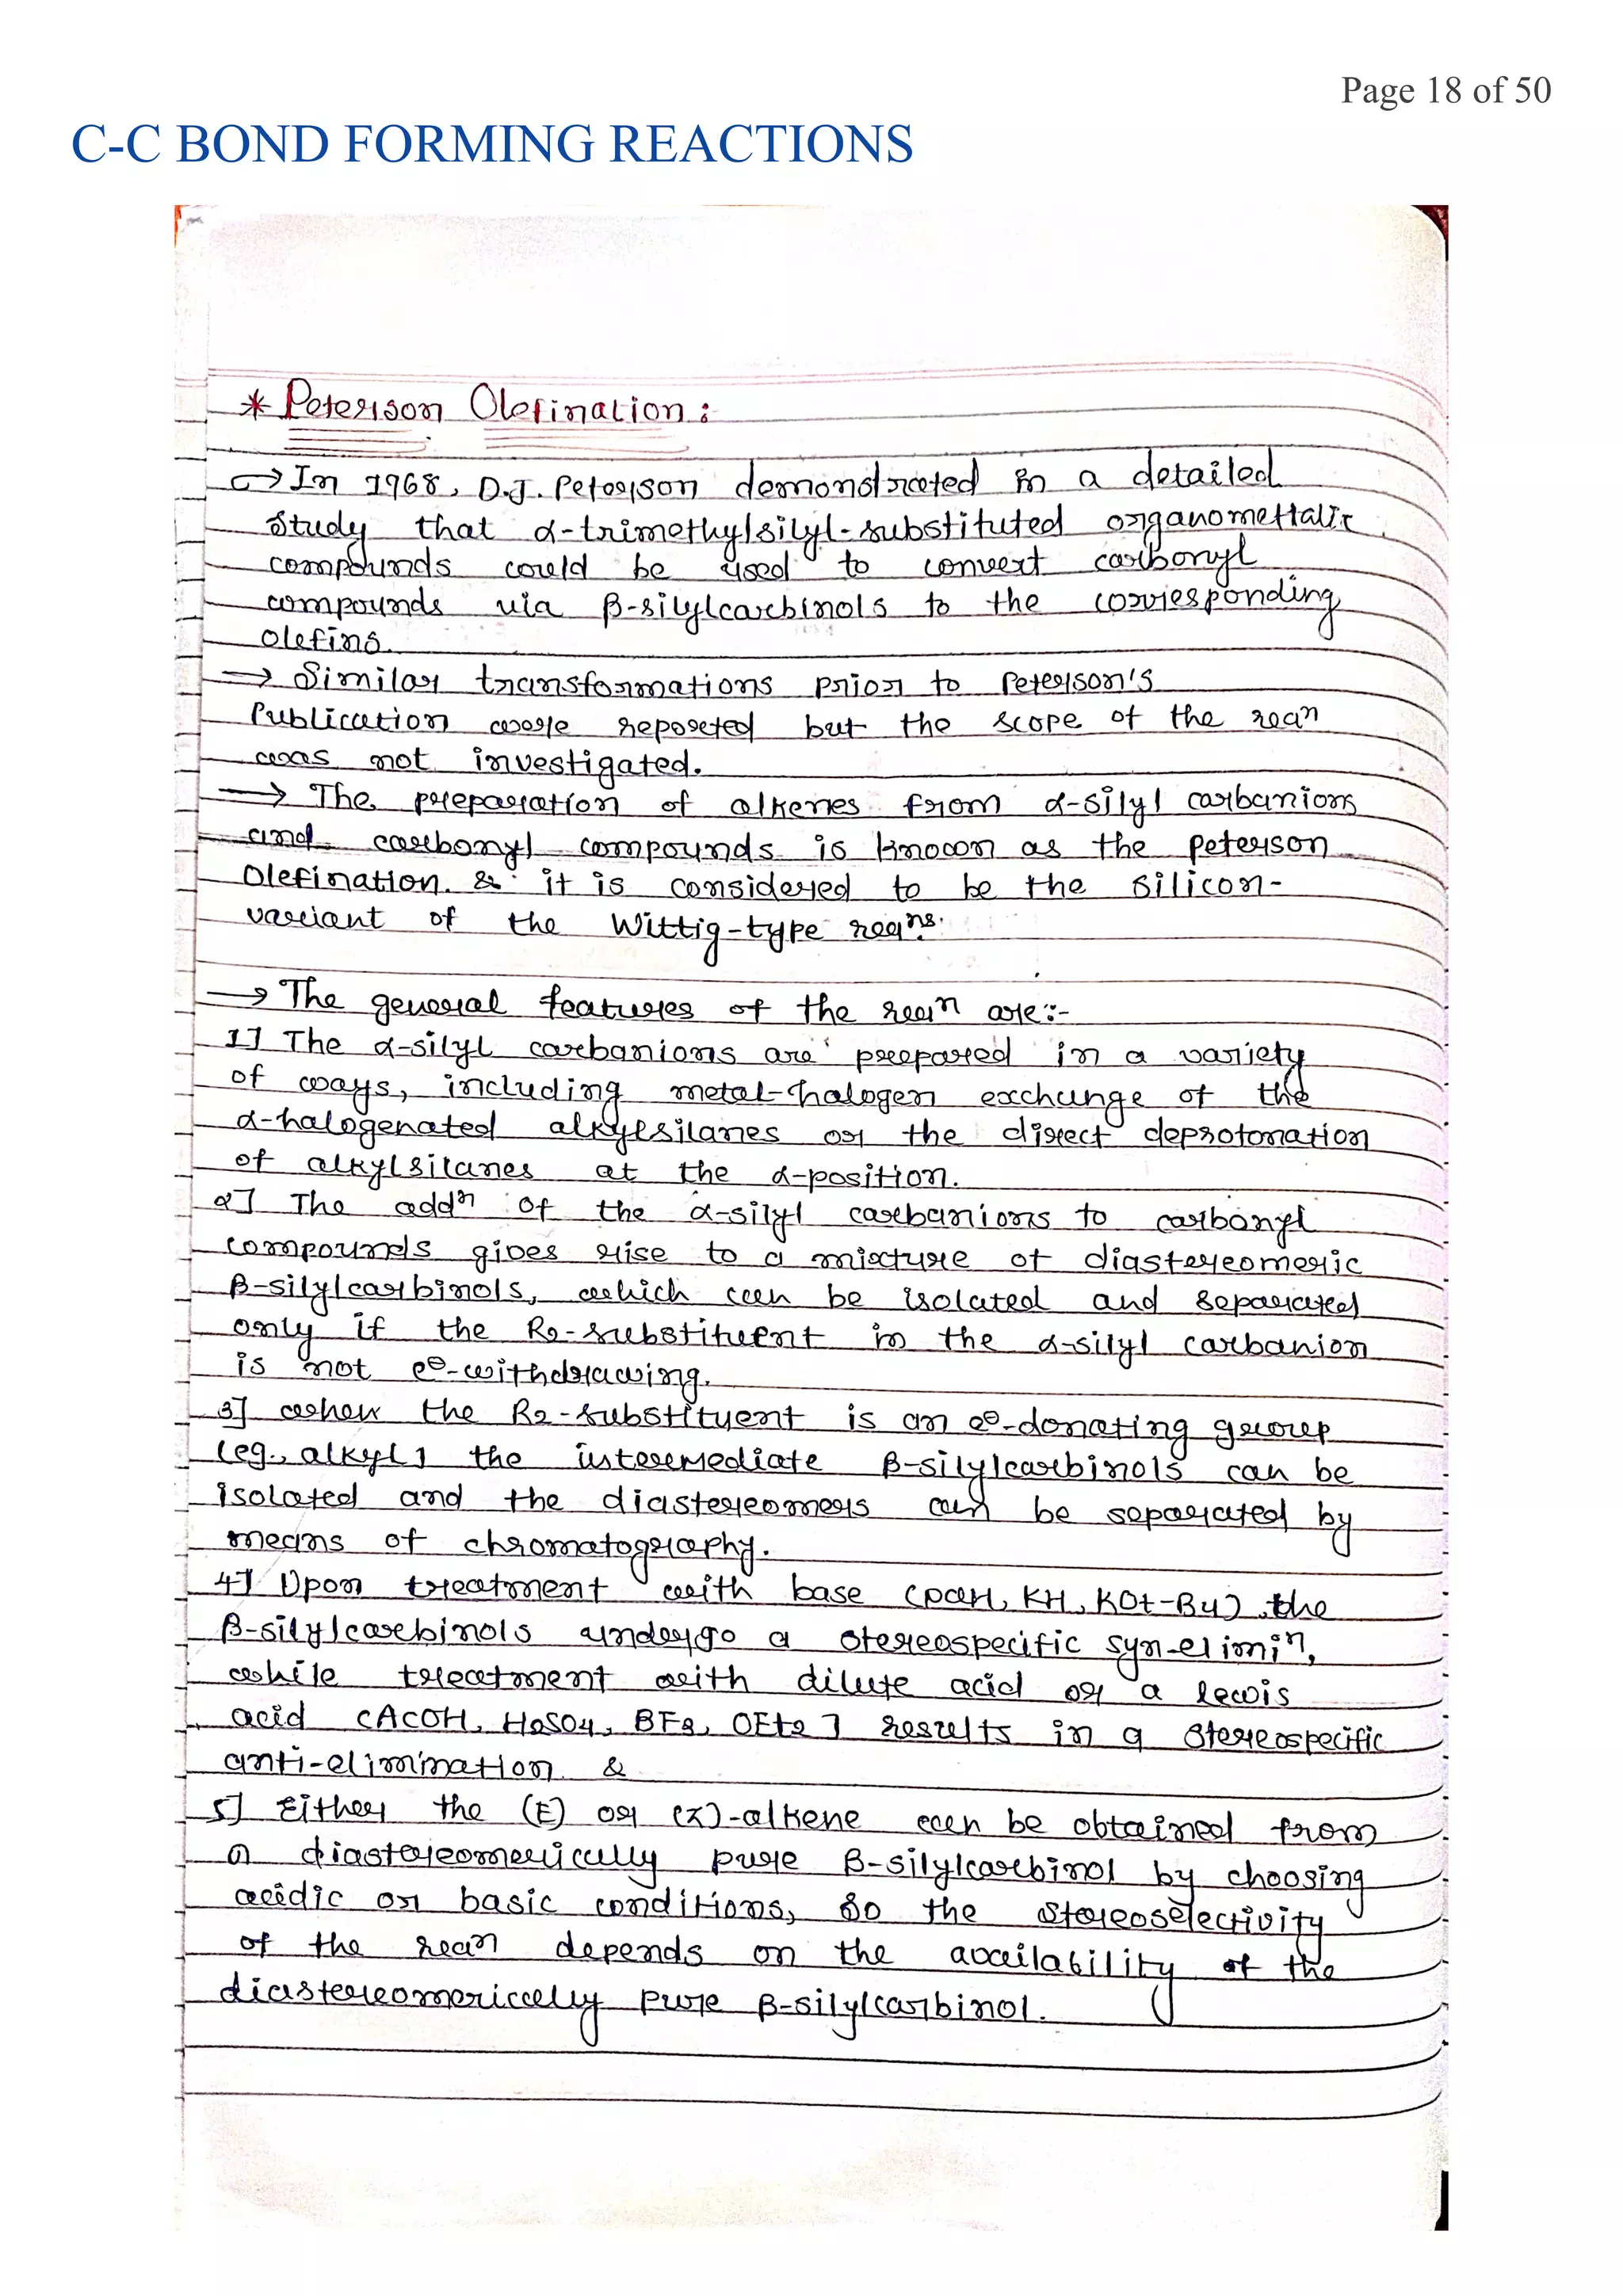 Page 18 of 50
C-C BOND FORMING REACTIONS
* Peterson Olefination :
→ In 1968, D.J. Peterson demonstrated in a detailed
study that α-trimethylsilyl-substituted organomettalic
compounds could be used to convert carbonyl
compounds via β-silylcarbinols to the corresponding
olefins.
→ Similar transformations prior to Peterson's
Publication were reported but the scope of the reaⁿ
was not investigated.
→ The preparation of alkenes from α-silyl carbanions
and carbonyl compounds is known as the peterson
Olefination. & it is considered to be the silicon-
variant of the Wittig-type reaⁿs.
→ The general features of the reaⁿ are :-
1] The α-silyl carbanions are prepared in a variety
of ways, including metal-halogen exchange of the
α-halogenated alkylsilanes or the direct deprotonation
of alkylsilanes at the α-position.
2] The addⁿ of the α-silyl carbanions to carbonyl
compounds gives rise to a mixture of diastereomeric
β-silylcarbinols, which can be isolated and separated
only if the R2-substituent in the α-silyl carbanion
is not e⊖-withdrawing.
3] when the R2-substituent is an e⊖-donating group
(eg., alkyl] the intermediate β-silylcarbinols can be
isolated and the diastereomers can be separated by
means of chromatography.
4] Upon treatment with base (NaH, KH, KOt-Bu), the
β-silylcarbinols undergo a stereospecific syn-elimiⁿ,
while treatment with dilute acid or a lewis
acid (ACOH, H2SO4, BF3, OEt2 ] results in a stereospecific
anti-elimination &
5] Either the (E) or (Z)-alkene can be obtained from
a diastereomerically pure β-silylcarbinol by choosing
acidic or basic conditions, so the stereoselectivity
of the reaⁿ depends on the availability of the
diastereomerically pure β-silylcarbinol.